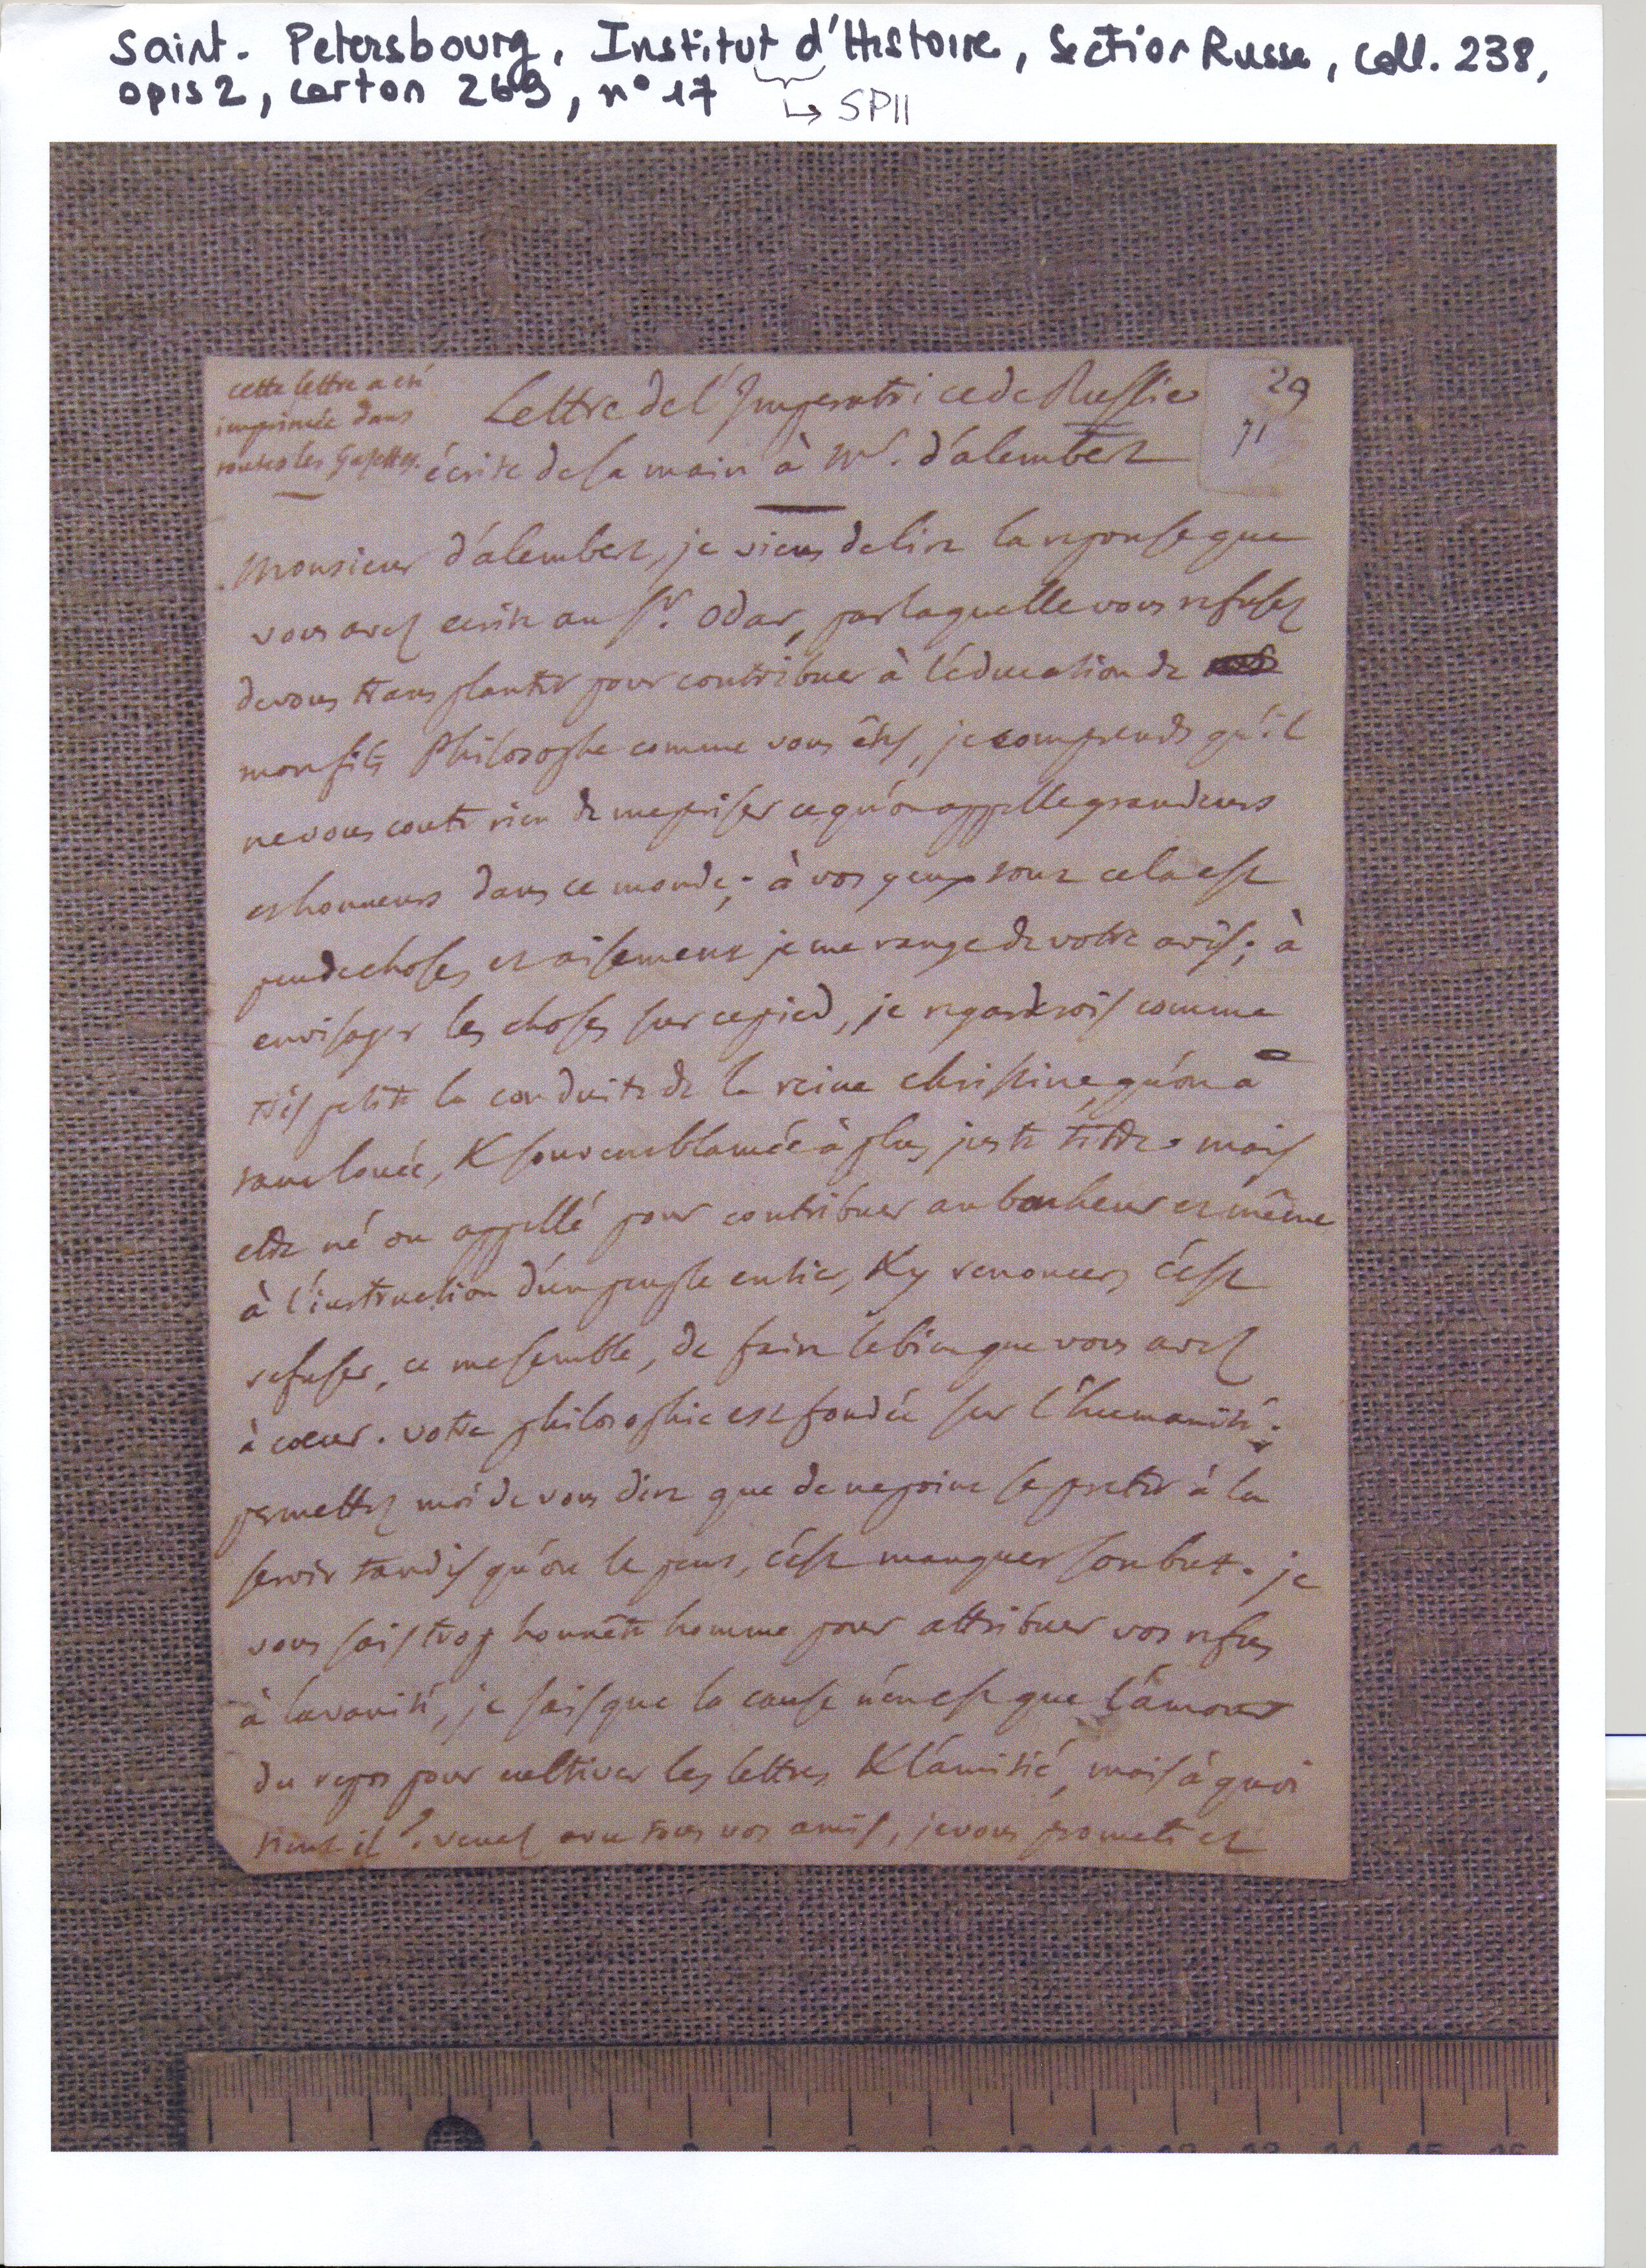 Saint. Petersbourg, Institut d'Histoire, Section Russe, coll. 238,
opis 2, carton 269, n° 17
↳ SPII
cette lettre a eté
imprimée dans
toutes les Gazettes.
29
71
Lettre de l'Imperatrice de Russie
écrite de sa main à Mr. d'alembert
Monsieur d'alembert, je viens de lire la reponse que
vous avez ecrite au Sr. Odar, par laquelle vous refusez
de vous transplanter pour contribuer à l'éducation de
mon fils Philosophe comme vous êtes, je comprends qu'il
ne vous coute rien de mepriser ce qu'on appelle grandeurs
et honneurs dans ce monde; à vos yeux tout cela est
peu de chose, et aisement je me range de votre avis; à
envisager les choses sur ce pied, je regarderois comme
très petite la conduite de la reine christine, qu'on a
tant louée, & souvent blamée à plus juste titre. mais
etre né ou appellé pour contribuer au bonheur et même
à l'instruction d'un peuple entier, & y renoncer, c'est
refuser, ce me semble, de faire le bien que vous avez
à coeur. votre philosophie est fondée sur l'humanité;
permettez moi de vous dire que de ne point se preter à la
servir tandis qu'on le peut, c'est manquer son but. je
vous sais trop honnête homme pour attribuer vos refus
à la vanité, je sais que la cause n'en est que l'amour
du repos pour cultiver les lettres & l'amitié, mais à quoi
tient il? venez avec tous vos amis, je vous promets et